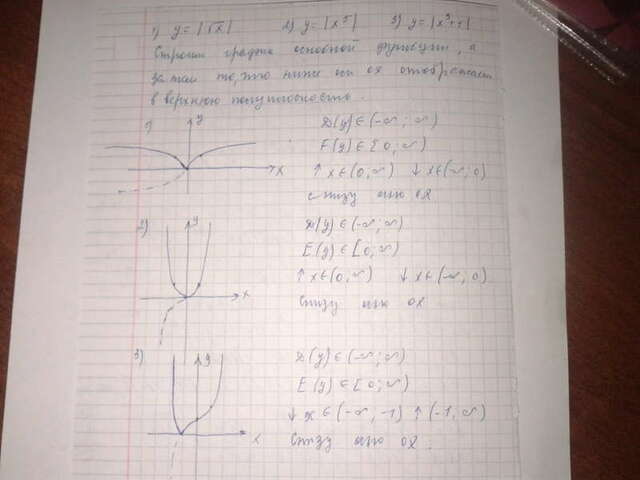 1) y = |√x| 2) y = |x⁵| 3) y = |x³+1|
Строим график основной функции, а
затем то, что ниже оси ox отображаем
в верхнюю полуплоскость.
1) y x
D(y) ∈ (-∞; ∞)
E(y) ∈ [0; ∞)
↑ x ∈ (0, ∞) ↓ x ∈ (-∞; 0)
снизу осью OX
2) y x
D(y) ∈ (-∞; ∞)
E(y) ∈ [0; ∞)
↑ x ∈ (0, ∞) ↓ x ∈ (-∞, 0)
снизу осью OX
3) y x
D(y) ∈ (-∞; ∞)
E(y) ∈ [0; ∞)
↓ x ∈ (-∞, -1) ↑ (-1, ∞)
снизу осью OX.